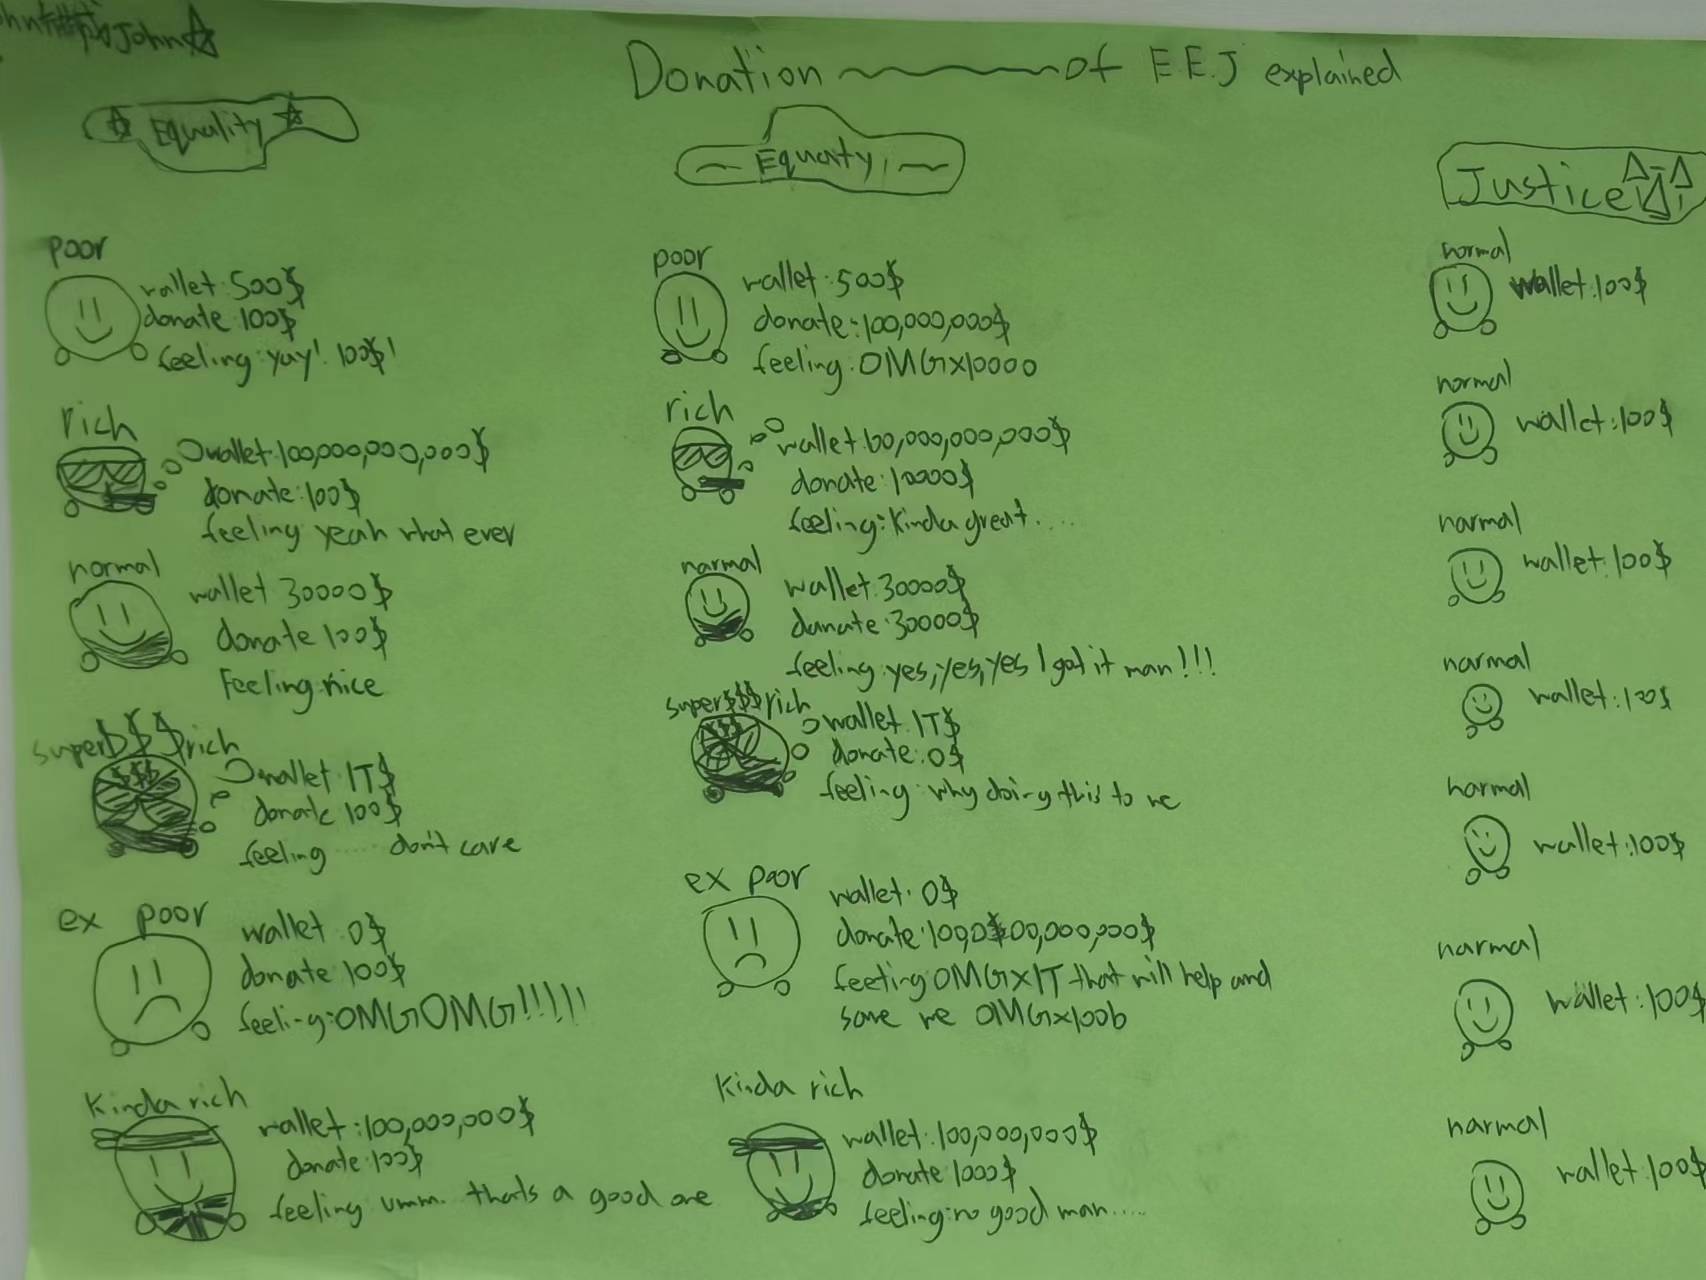 John☆
Donation of E.E.J explained
☆ Equality ☆
poor
wallet:500$
donate 100$
feeling:yay! 100$!
rich
wallet:100,000,000,000$
donate:100$
feeling yeah what ever
normal
wallet 30000$
donate 100$
Feeling:nice
super$$$rich
wallet 1T$
donate 100$
feeling ..... don't care
ex poor
wallet 0$
donate 100$
feeling:OMGOMG!!!!!
Kinda rich
wallet:100,000,000$
donate:100$
feeling umm.. thats a good one
Equaty
poor
wallet:500$
donate:100,000,000$
feeling:OMGx10000
rich
wallet:100,000,000,000$
donate:10000$
feeling:Kinda great.....
narmal
wallet:30000$
danate:30000$
feeling:yes,yes,yes I got it man!!!
super$$$rich
wallet 1T$
donate:0$
feeling:why doing this to me
ex poor
wallet:0$
donate:100,0$00,000,000$
feeting:OMGx1T that will help and
save me OMGx100b
Kinda rich
wallet:100,000,000$
donate 1000$
feeling:no good man.....
Justice
normal
wallet:100$
normal
wallet:100$
narmal
wallet:100$
narmal
wallet:100$
narmal
wallet:100$
narmal
wallet:100$
narmal
wallet:100$